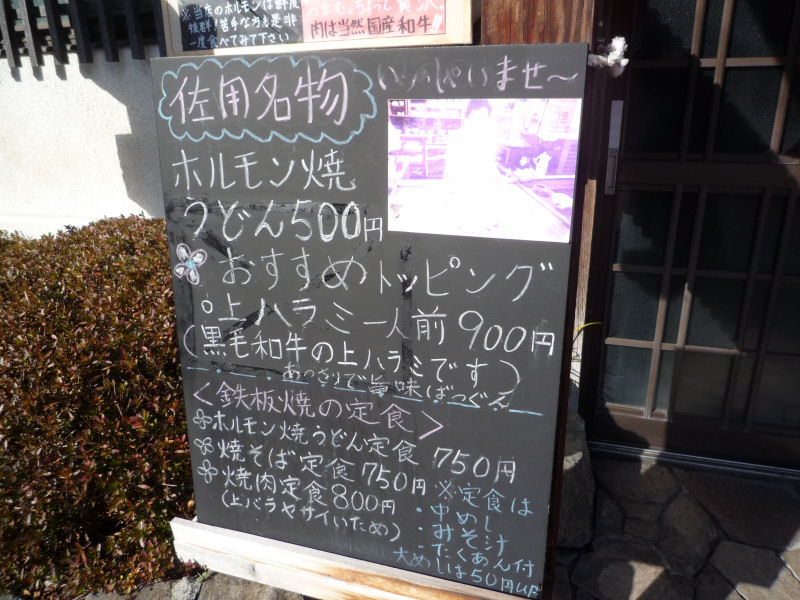 ※当店のホルモンは鮮度
抜群!苦手な方も是非
一度食べてみて下さい
肉は当然国産和牛!!
佐用名物
いらっしゃいませ〜
ホルモン焼
うどん500円
おすすめトッピング
○上ハラミ一人前900円
(黒毛和牛の上ハラミです)
あっさりで旨味ばつぐん
<鉄板焼の定食>
ホルモン焼うどん定食 750円
焼そば定食 750円
焼肉定食 800円
(上バラヤサイいため)
※定食は
・中めし
・みそ汁
・たくあん付
大めしは50円UP